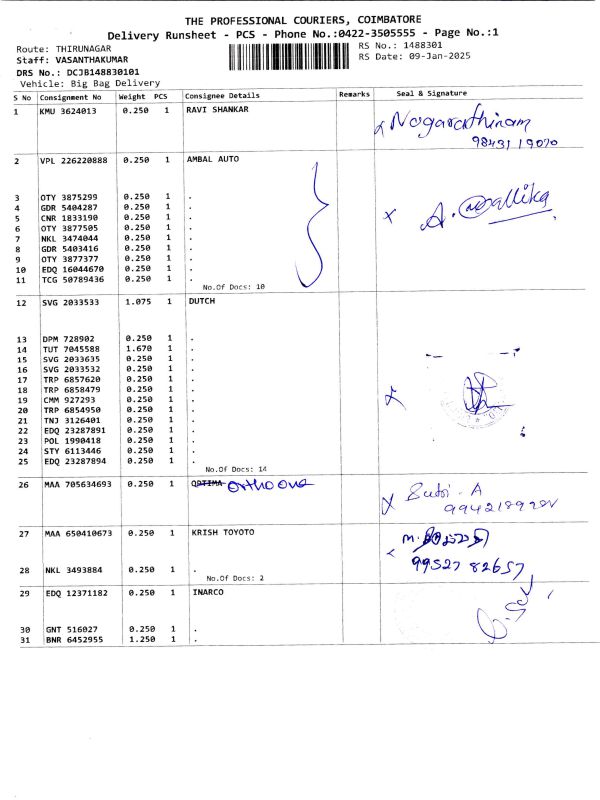 THE PROFESSIONAL COURIERS, COIMBATORE
Delivery Runsheet - PCS - Phone No.:0422-3505555 - Page No.:1
Route: THIRUNAGAR RS No.: 1488301
Staff: VASANTHAKUMAR RS Date: 09-Jan-2025
DRS No.: DCJB148830101
Vehicle: Big Bag Delivery
S No Consignment No Weight PCS Consignee Details Remarks Seal & Signature
1 KMU 3624013 0.250 1 RAVI SHANKAR
Nagarathinam
98431 19070
2 VPL 226220888 0.250 1 AMBAL AUTO
3 OTY 3875299 0.250 1 .
4 GDR 5404287 0.250 1 .
5 CNR 1833190 0.250 1 .
6 OTY 3877505 0.250 1 .
7 NKL 3474044 0.250 1 .
8 GDR 5403416 0.250 1 .
9 OTY 3877377 0.250 1 .
10 EDQ 16044670 0.250 1 .
11 TCG 50789436 0.250 1 .
No.Of Docs: 10
X A. Mallika
12 SVG 2033533 1.075 1 DUTCH
13 DPM 728902 0.250 1 .
14 TUT 7045588 1.670 1 .
15 SVG 2033635 0.250 1 .
16 SVG 2033532 0.250 1 .
17 TRP 6857620 0.250 1 .
18 TRP 6858479 0.250 1 .
19 CMM 927293 0.250 1 .
20 TRP 6854950 0.250 1 .
21 TNJ 3126401 0.250 1 .
22 EDQ 23287891 0.250 1 .
23 POL 1990418 0.250 1 .
24 STY 6113446 0.250 1 .
25 EDQ 23287894 0.250 1 .
No.Of Docs: 14
X
26 MAA 705634693 0.250 1 OPTIMA Ortho One
X
27 MAA 650410673 0.250 1 KRISH TOYOTO
99527 82657
28 NKL 3493884 0.250 1 .
No.Of Docs: 2
29 EDQ 12371182 0.250 1 INARCO
30 GNT 516027 0.250 1 .
31 BNR 6452955 1.250 1 .